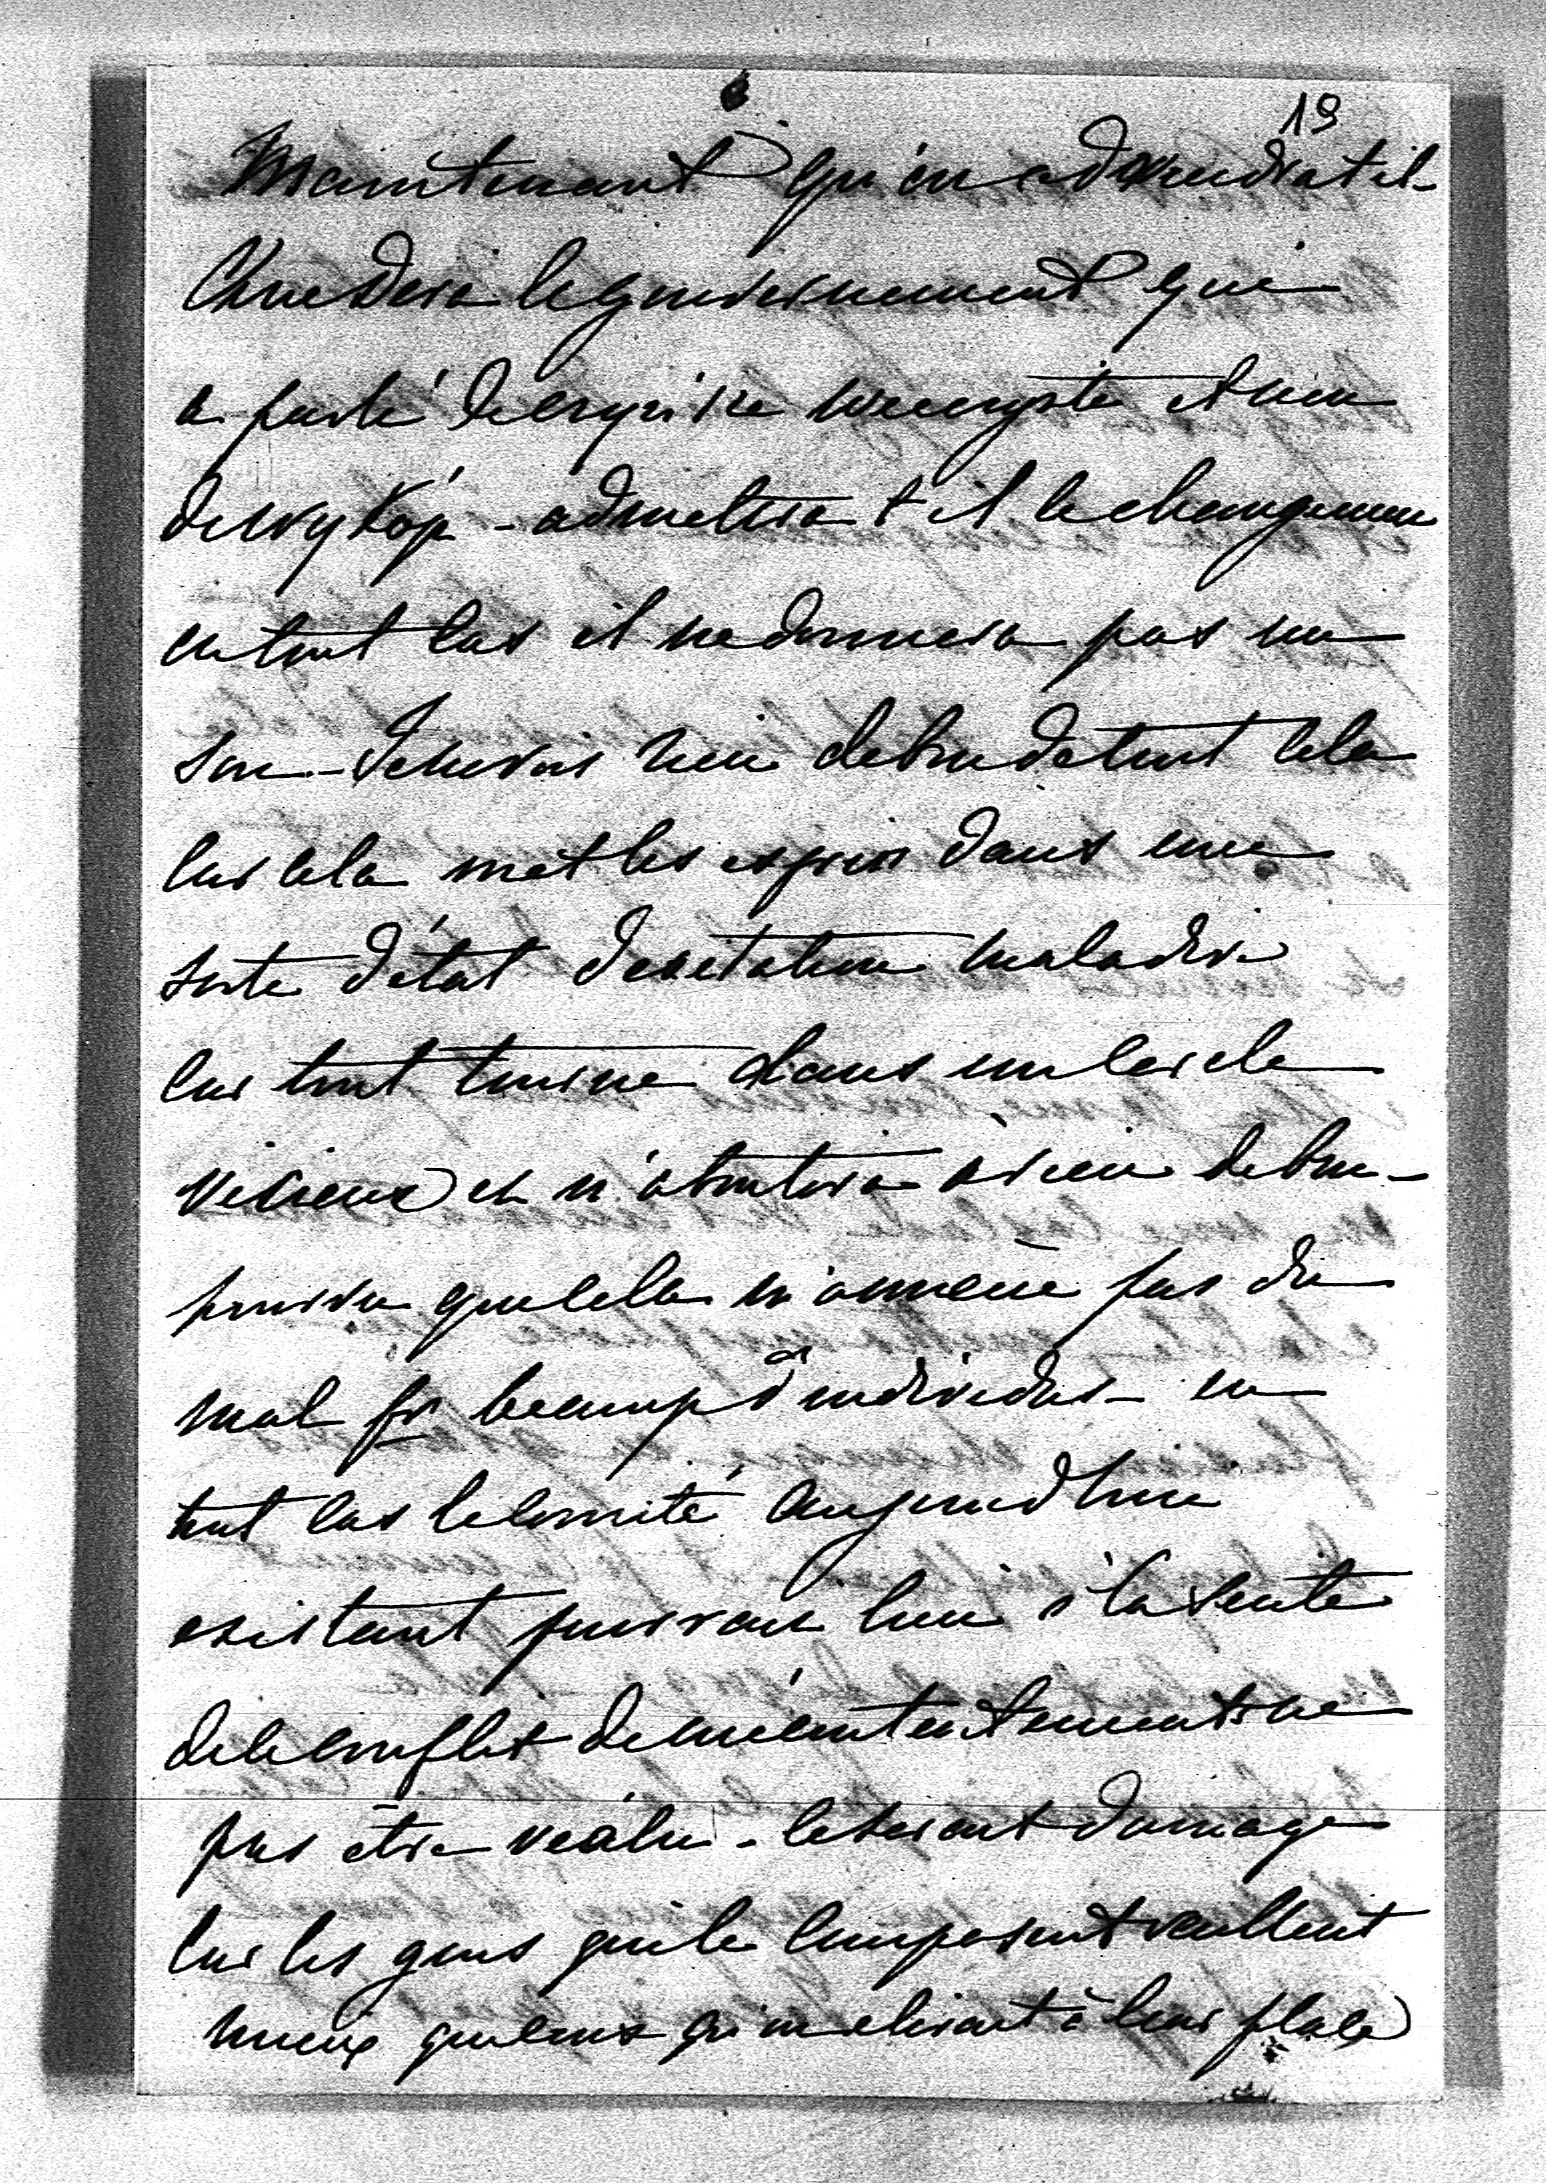 19
Maintenant qu'en adviendra t il
Que dira le gouvernement qui
a parlé de
de wykop - admettra t il le changemen
en tout cas il ne donnera pas un
sou - Je ne vois rien de bon de tout cela
car cela met les esprits dans une
sorte d'état d'exetation maladive
car tout tourne dans un cercle
vicieux et n'aboutira à rien de bon -
pourvu que cela n'amène pas du
mal pr beaucoup d'individus - en
tout cas le comité aujourd'hui
existant pourrait lui à la suite
de le conflit de mécontentements ne
pas être réélu - ce serait domage
car les gens qui le composent vaillent
mieux que ceux qu'on elirait à leur place